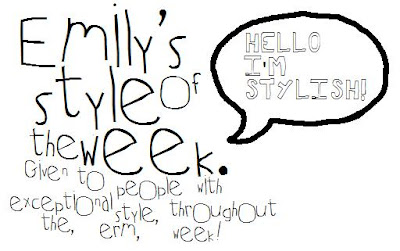 Emily's
style of
the week.
Given to people with
exceptional style, throughout
the, erm, week!
HELLO
I'M
STYLISH!